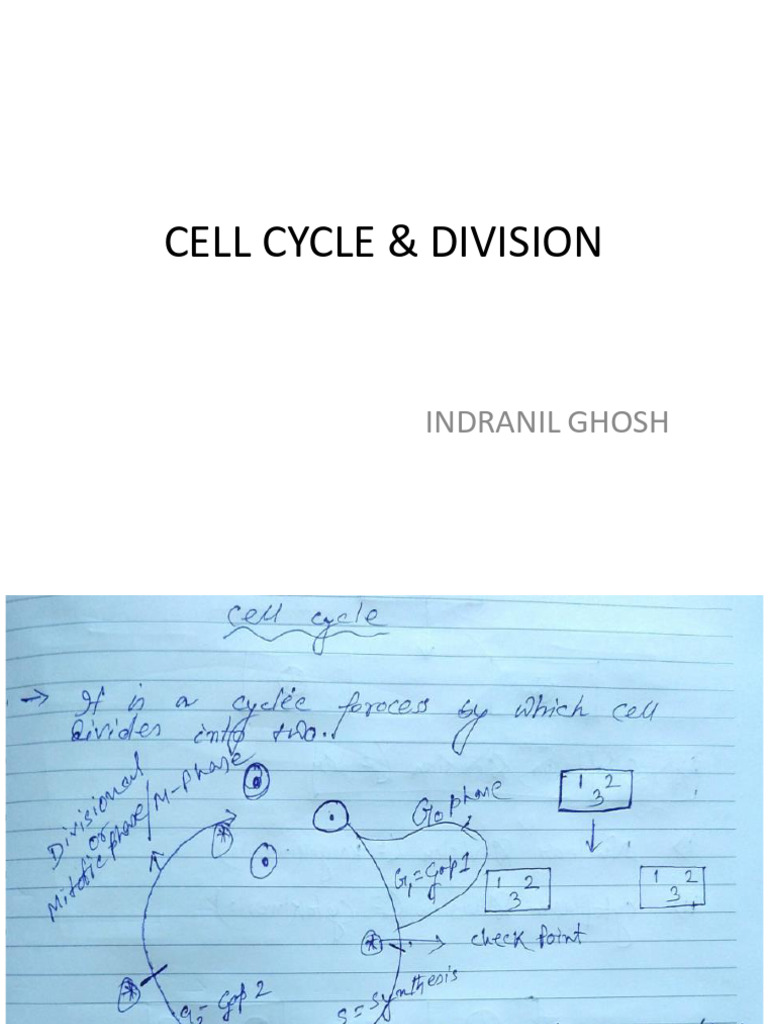 CELL CYCLE & DIVISION
INDRANIL GHOSH
cell cycle
→ It is a cyclic process by which cell
divides into two.
Divisional
or
Mitotic phase/M-phase
G0 phase
1 2
3
G1 = Gap 1
1 2
3
1 2
3
check point
G2 - Gap 2
S = Synthesis